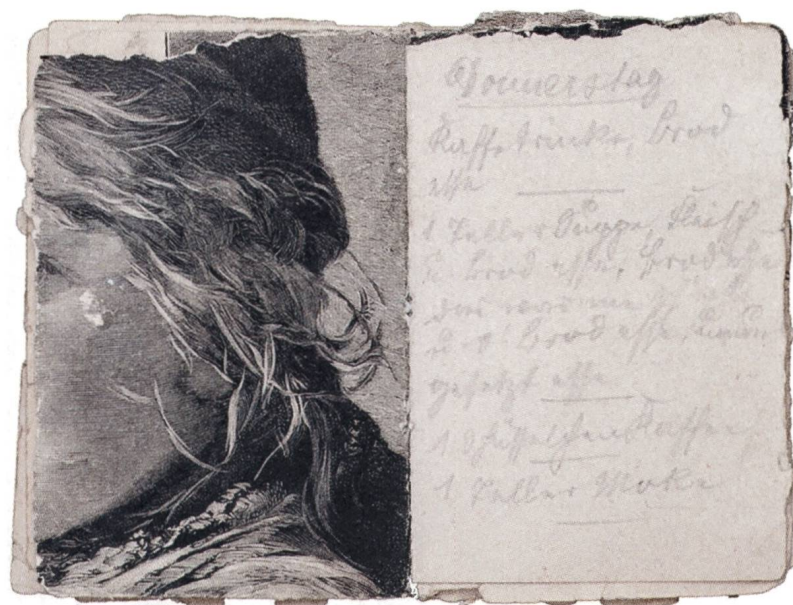 Donnerstag
Kaffe trinke, Brod
esse
1 Teller Suppe, Fleisch
u. Brod esse, Brod esse
das
Brod esse,
gesetzt esse
1 Schüsselchen Kaffee
1 Teller Moke